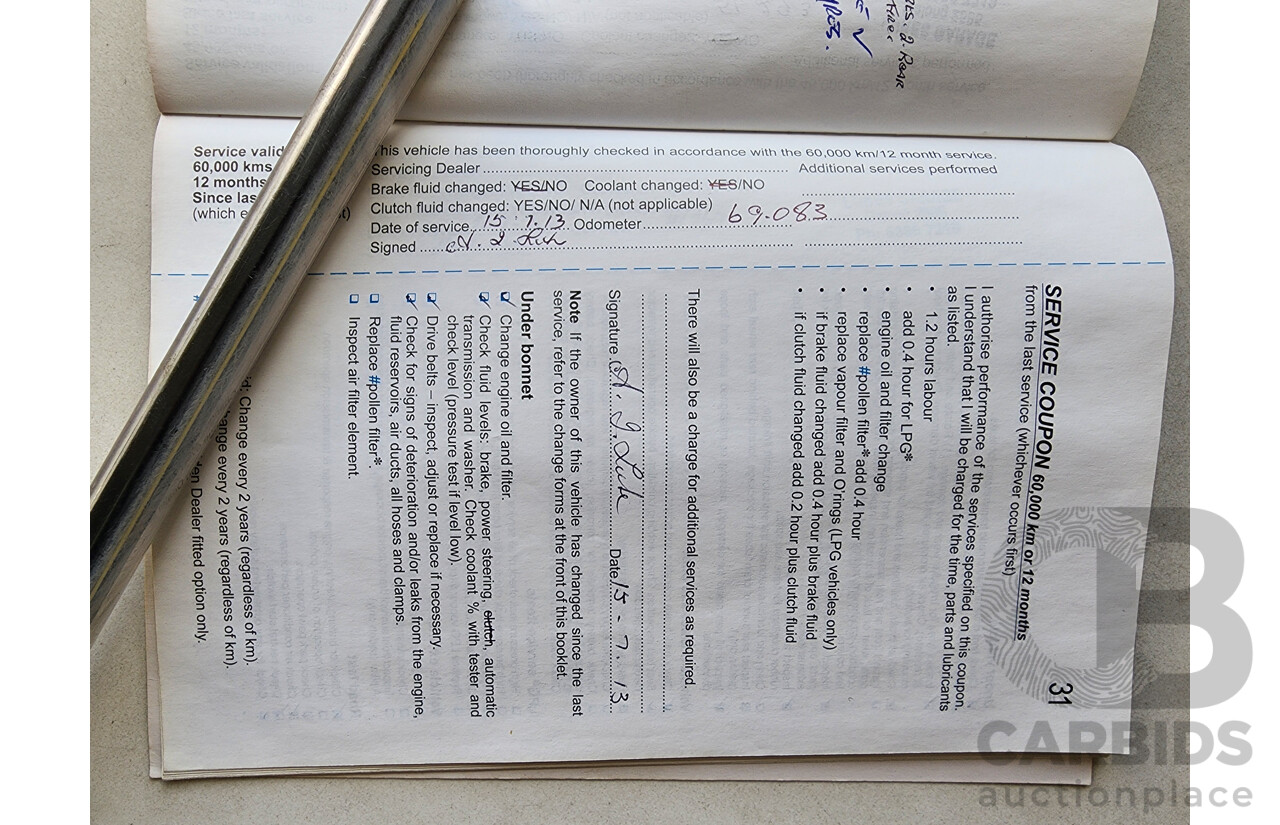 Service valid
60,000 kms
12 months
Since las
(which e t)
his vehicle has been thoroughly checked in accordance with the 60,000 km/12 month service.
Servicing Dealer ........ Additional services performed
Brake fluid changed: YES/NO Coolant changed: YES/NO
Clutch fluid changed: YES/NO/ N/A (not applicable)
Date of service 15 7.13 Odometer 69.083
Signed
SERVICE COUPON 60,000 km or 12 months 31
from the last service (whichever occurs first)
I authorise performance of the services specified on this coupon.
I understand that I will be charged for the time, parts and lubricants
as listed.
• 1.2 hours labour
• add 0.4 hour for LPG*
• engine oil and filter change
• replace #pollen filter* add 0.4 hour
• replace vapour filter and O'rings (LPG vehicles only)
• if brake fluid changed add 0.4 hour plus brake fluid
• if clutch fluid changed add 0.2 hour plus clutch fluid
There will also be a charge for additional services as required.
Signature Date 15-7.13
Note If the owner of this vehicle has changed since the last
service, refer to the change forms at the front of this booklet.
Under bonnet
Change engine oil and filter.
Check fluid levels: brake, power steering, clutch, automatic
transmission and washer. Check coolant % with tester and
check level (pressure test if level low).
Drive belts – inspect, adjust or replace if necessary.
Check for signs of deterioration and/or leaks from the engine,
fluid reservoirs, air ducts, all hoses and clamps.
Replace #pollen filter*
Inspect air filter element.
d: Change every 2 years (regardless of km).
ange every 2 years (regardless of km).
en Dealer fitted option only.
CARBIDS
auctionplace